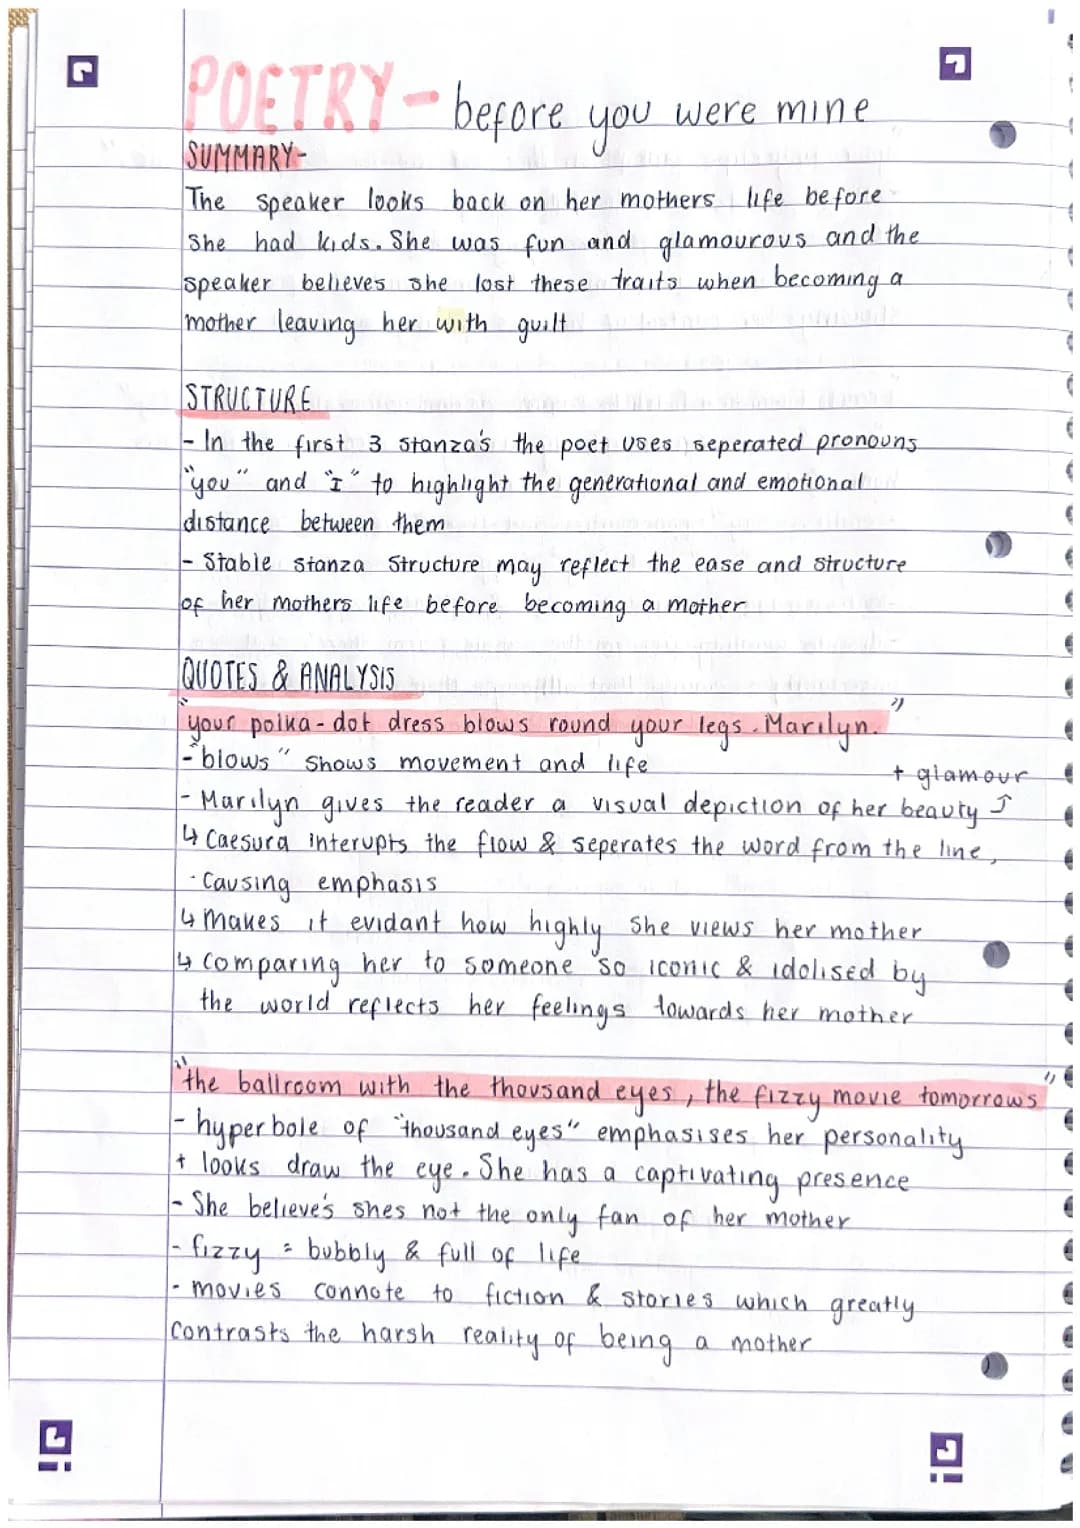 POETRY - before you were mine
SUMMARY-
The speaker looks back on her mothers life before
she had kids. She was fun and glamourous and the
speaker believes she lost these traits when becoming a
mother leaving her with guilt
STRUCTURE
- In the first 3 stanza's the poet uses seperated pronouns
"you" and "I" to highlight the generational and emotional
distance between them
- Stable stanza structure may reflect the ease and structure
of her mothers life before becoming a mother
QUOTES & ANALYSIS
"your polka-dot dress blows round your legs. Marilyn."
- "blows" shows movement and life
+ glamour
- Marilyn gives the reader a visual depiction of her beauty ⤴
↳ Caesura interupts the flow & seperates the word from the line,
· causing emphasis
↳ makes it evidant how highly she views her mother
↳ comparing her to someone so iconic & idolised by
the world reflects her feelings towards her mother
"the ballroom with the thousand eyes, the fizzy movie tomorrows"
- hyperbole of "thousand eyes" emphasises her personality
+ looks draw the eye. She has a captivating presence
- She believe's shes not the only fan of her mother
- fizzy = bubbly & full of life
- movies connote to fiction & stories which greatly
contrasts the harsh reality of being a mother